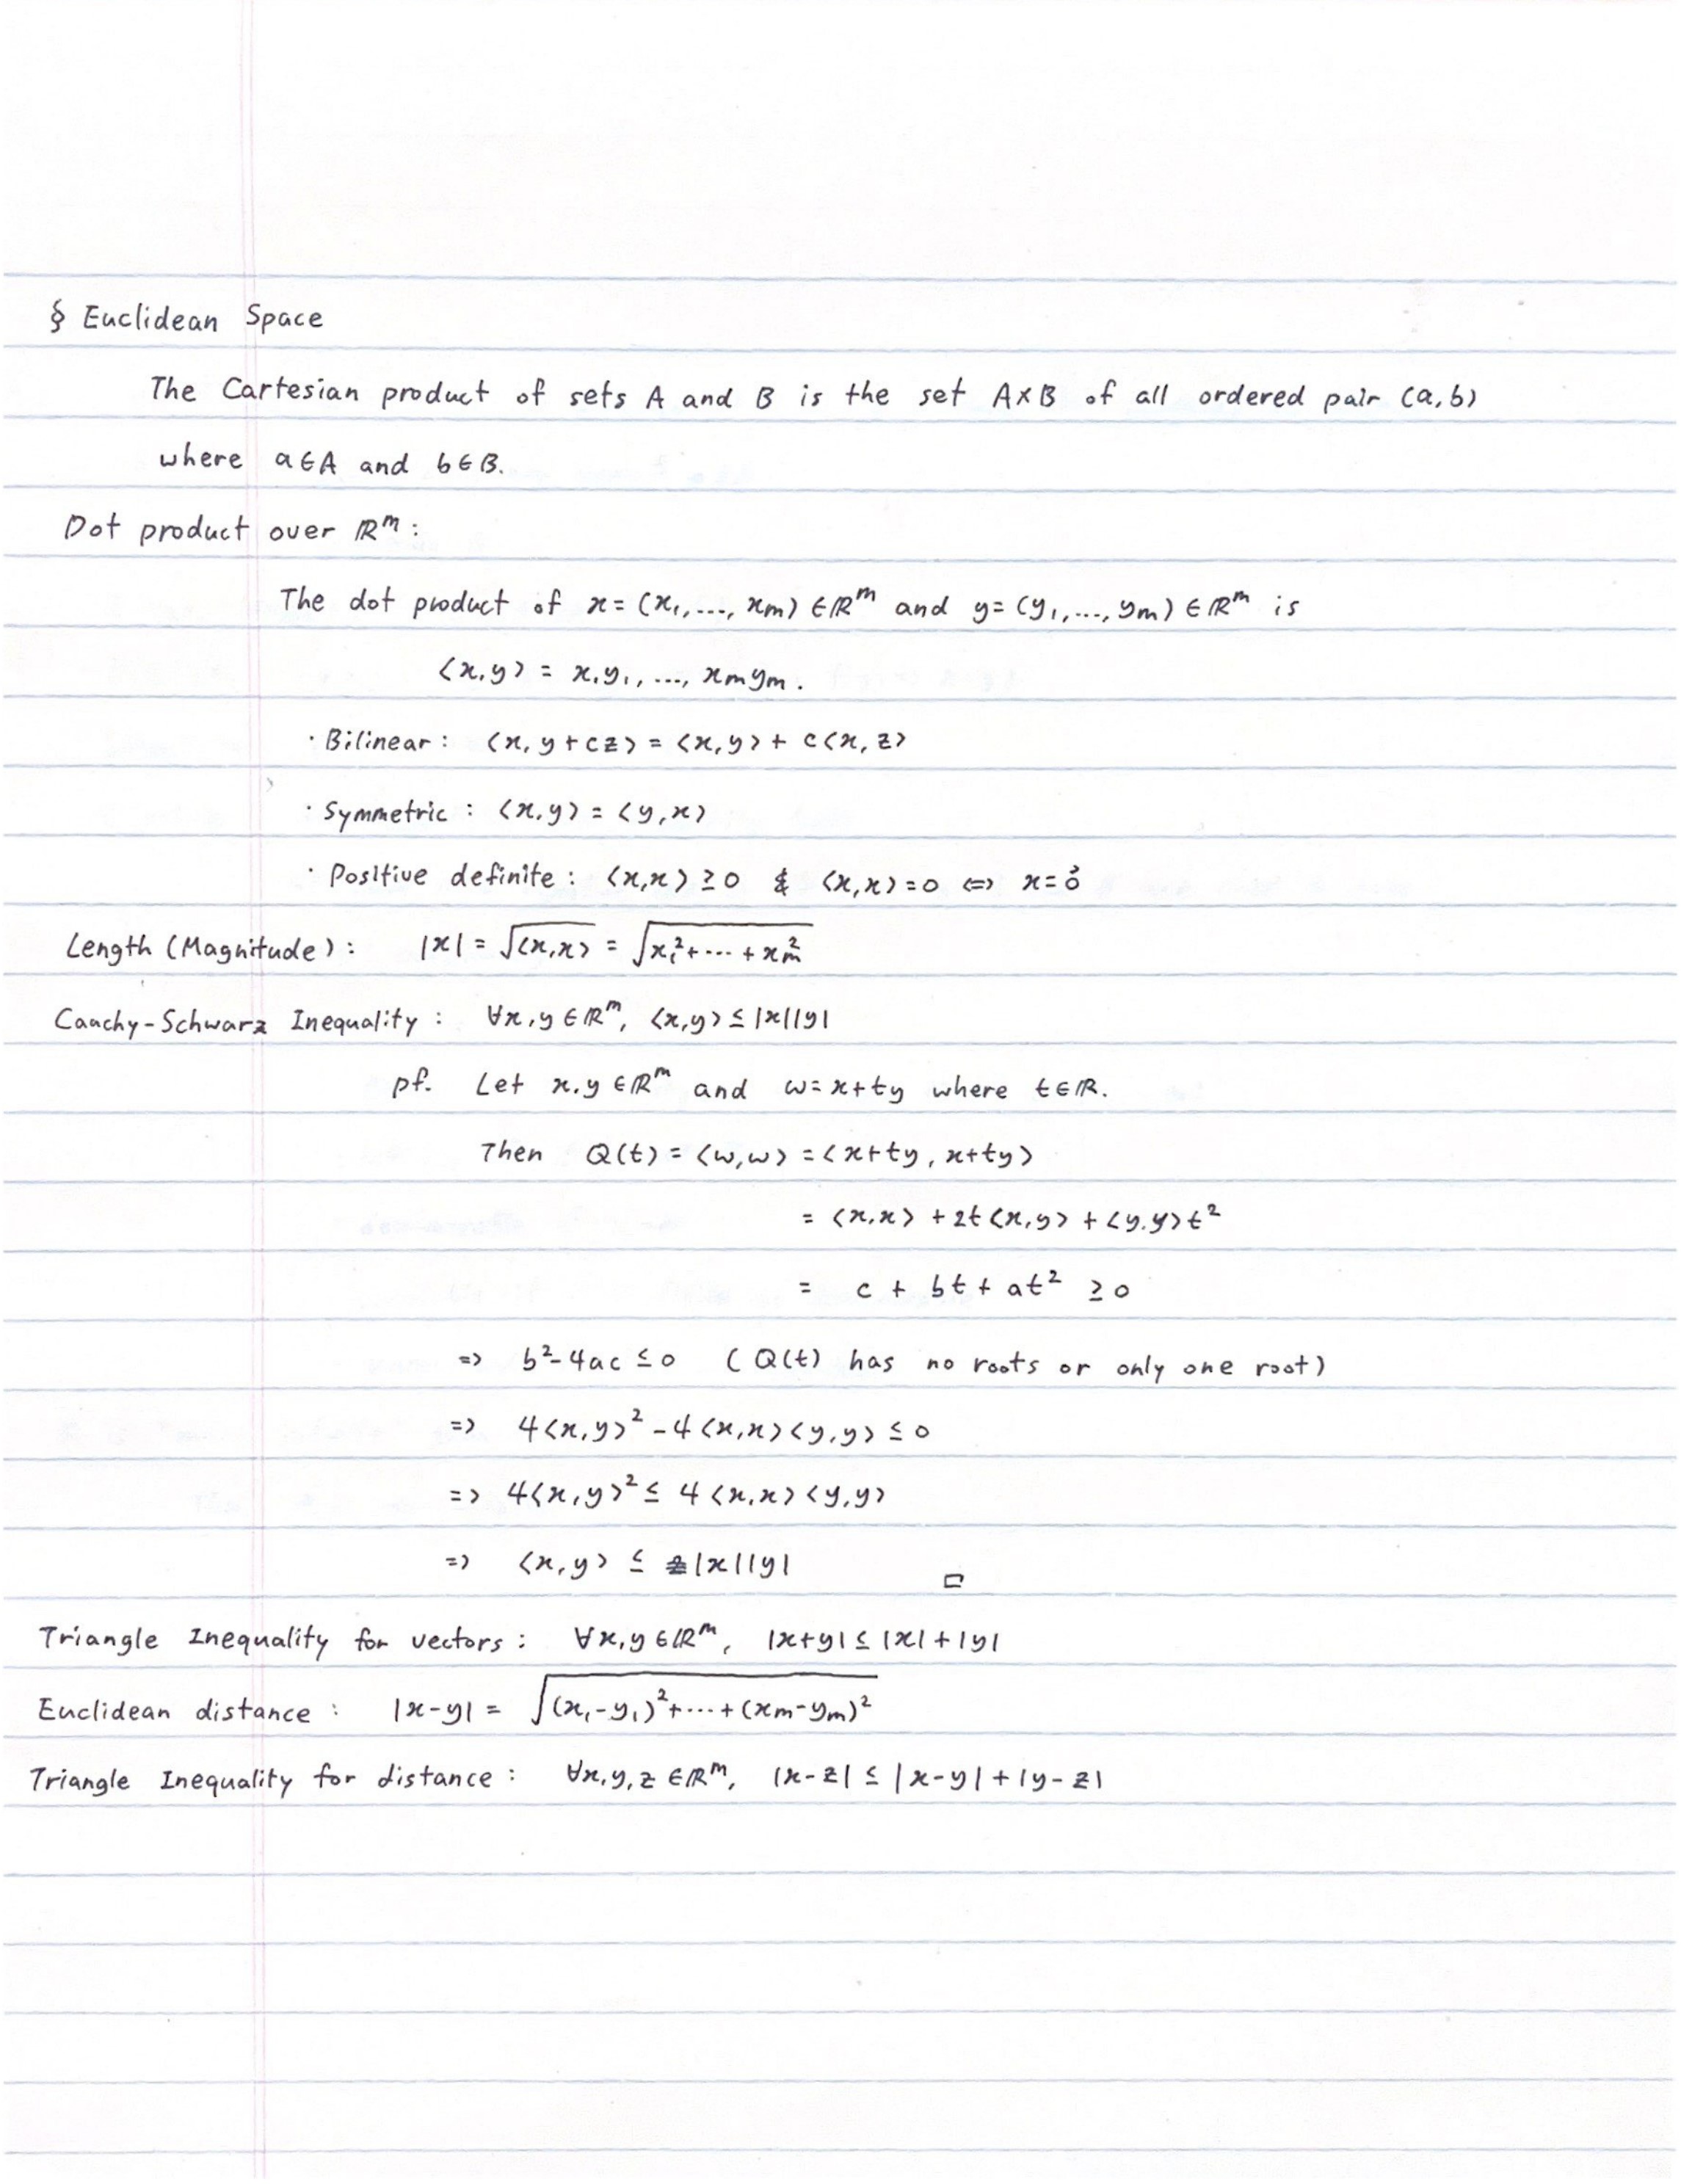 § Euclidean Space
The Cartesian product of sets A and B is the set A×B of all ordered pair (a,b)
where a∈A and b∈B.
Dot product over ℝᵐ:
The dot product of x=(x₁,...,xₘ)∈ℝᵐ and y=(y₁,...,yₘ)∈ℝᵐ is
⟨x,y⟩ = x₁y₁,..., xₘyₘ.
· Bilinear: ⟨x, y+cz⟩ = ⟨x,y⟩ + c⟨x,z⟩
· Symmetric: ⟨x,y⟩ = ⟨y,x⟩
· Positive definite: ⟨x,x⟩ ≥ 0 & ⟨x,x⟩=0 ⇔ x=0⃗
Length (Magnitude): |x| = √⟨x,x⟩ = √(x₁²+···+xₘ²)
Cauchy-Schwarz Inequality: ∀x,y∈ℝᵐ, ⟨x,y⟩ ≤ |x||y|
pf. Let x,y∈ℝᵐ and w=x+ty where t∈ℝ.
Then Q(t) = ⟨w,w⟩ = ⟨x+ty, x+ty⟩
= ⟨x,x⟩ + 2t⟨x,y⟩ + ⟨y,y⟩t²
= c + bt + at² ≥ 0
⇒ b²-4ac ≤ 0 (Q(t) has no roots or only one root)
⇒ 4⟨x,y⟩² - 4⟨x,x⟩⟨y,y⟩ ≤ 0
⇒ 4⟨x,y⟩² ≤ 4⟨x,x⟩⟨y,y⟩
⇒ ⟨x,y⟩ ≤ |x||y| □
Triangle Inequality for vectors: ∀x,y∈ℝᵐ, |x+y| ≤ |x|+|y|
Euclidean distance: |x-y| = √((x₁-y₁)²+···+(xₘ-yₘ)²)
Triangle Inequality for distance: ∀x,y,z∈ℝᵐ, |x-z| ≤ |x-y|+|y-z|